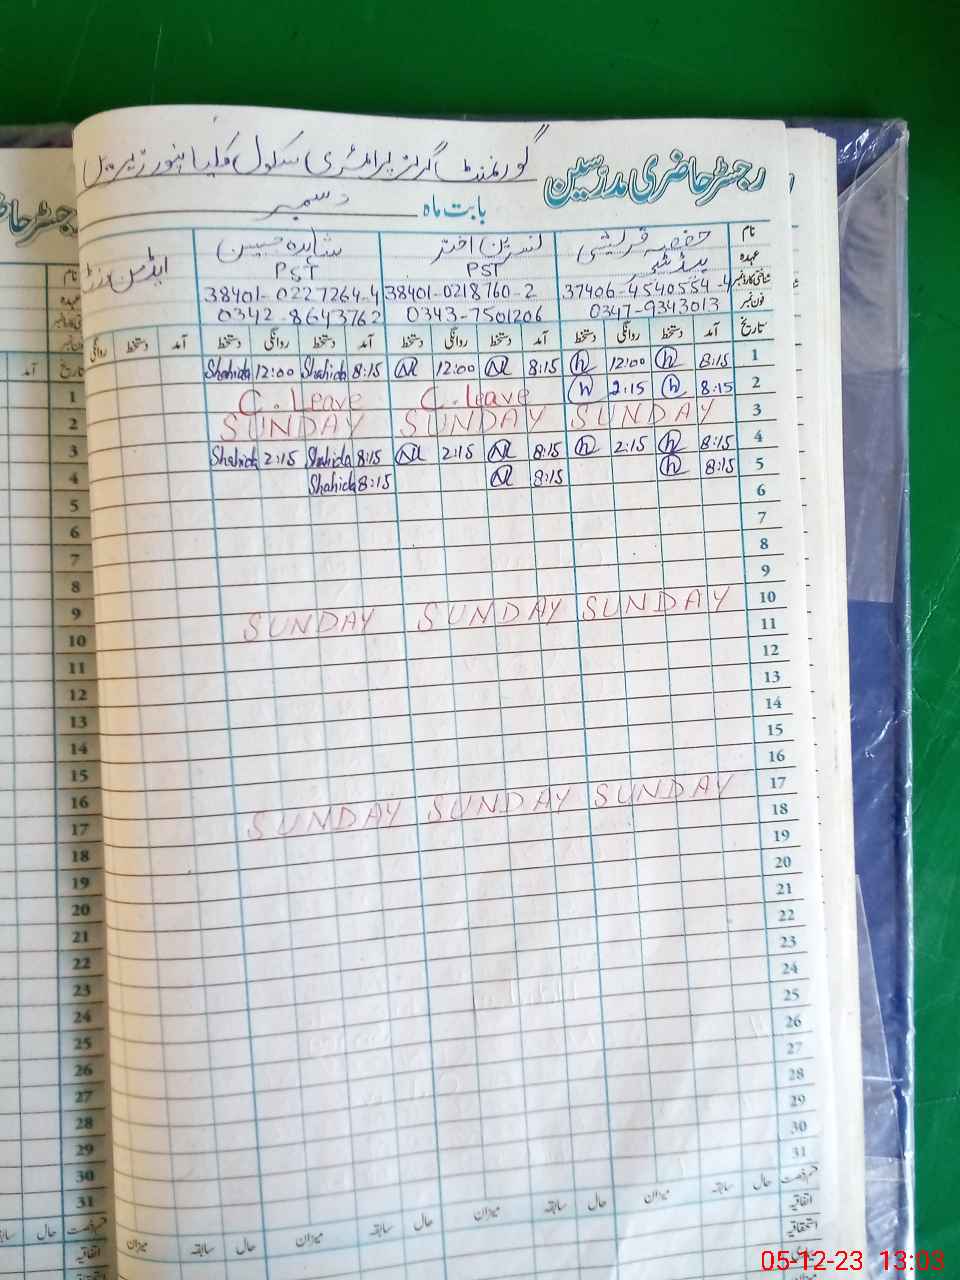 رجسٹر حاضری مدرسین گورنمنٹ گرلز پرائمری سکول
بابت ماہ دسمبر
نام حفصہ قریشی نسرین اختر شاہدہ حسین
عہدہ PST PST
شناختی کارڈ نمبر 37406-4540554-4 38401-0218760-2 38401-0227264-4
فون نمبر 0347-9343013 0343-7501206 0342-8643762
تاریخ آمد دستخط روانگی دستخط آمد دستخط روانگی دستخط آمد دستخط روانگی دستخط آمد دستخط روانگی
1 8:15 h 12:00 h 8:15 N 12:00 N 8:15 Shahida 12:00 Shahida
2 8:15 h 2:15 h C. Leave C. Leave
3 SUNDAY SUNDAY SUNDAY
4 8:15 h 2:15 h 8:15 N 2:15 N 8:15 Shahida 2:15 Shahida
5 8:15 h 8:15 N 8:15 Shahida
6
7
8
9
10 SUNDAY SUNDAY SUNDAY
11
12
13
14
15
16
17 SUNDAY SUNDAY SUNDAY
18
19
20
21
22
23
24
25
26
27
28
29
30
31
حال سابقہ میزان حال سابقہ میزان حال سابقہ میزان
اتفاقیہ
استحقاقیہ
رجسٹر حا
نام
عہدہ
تاریخ آمد
1
2
3
4
5
6
7
8
9
10
11
12
13
14
15
16
17
18
19
20
21
22
23
24
25
26
27
28
29
30
31
حال
اتفاقیہ
05-12-23 13:03